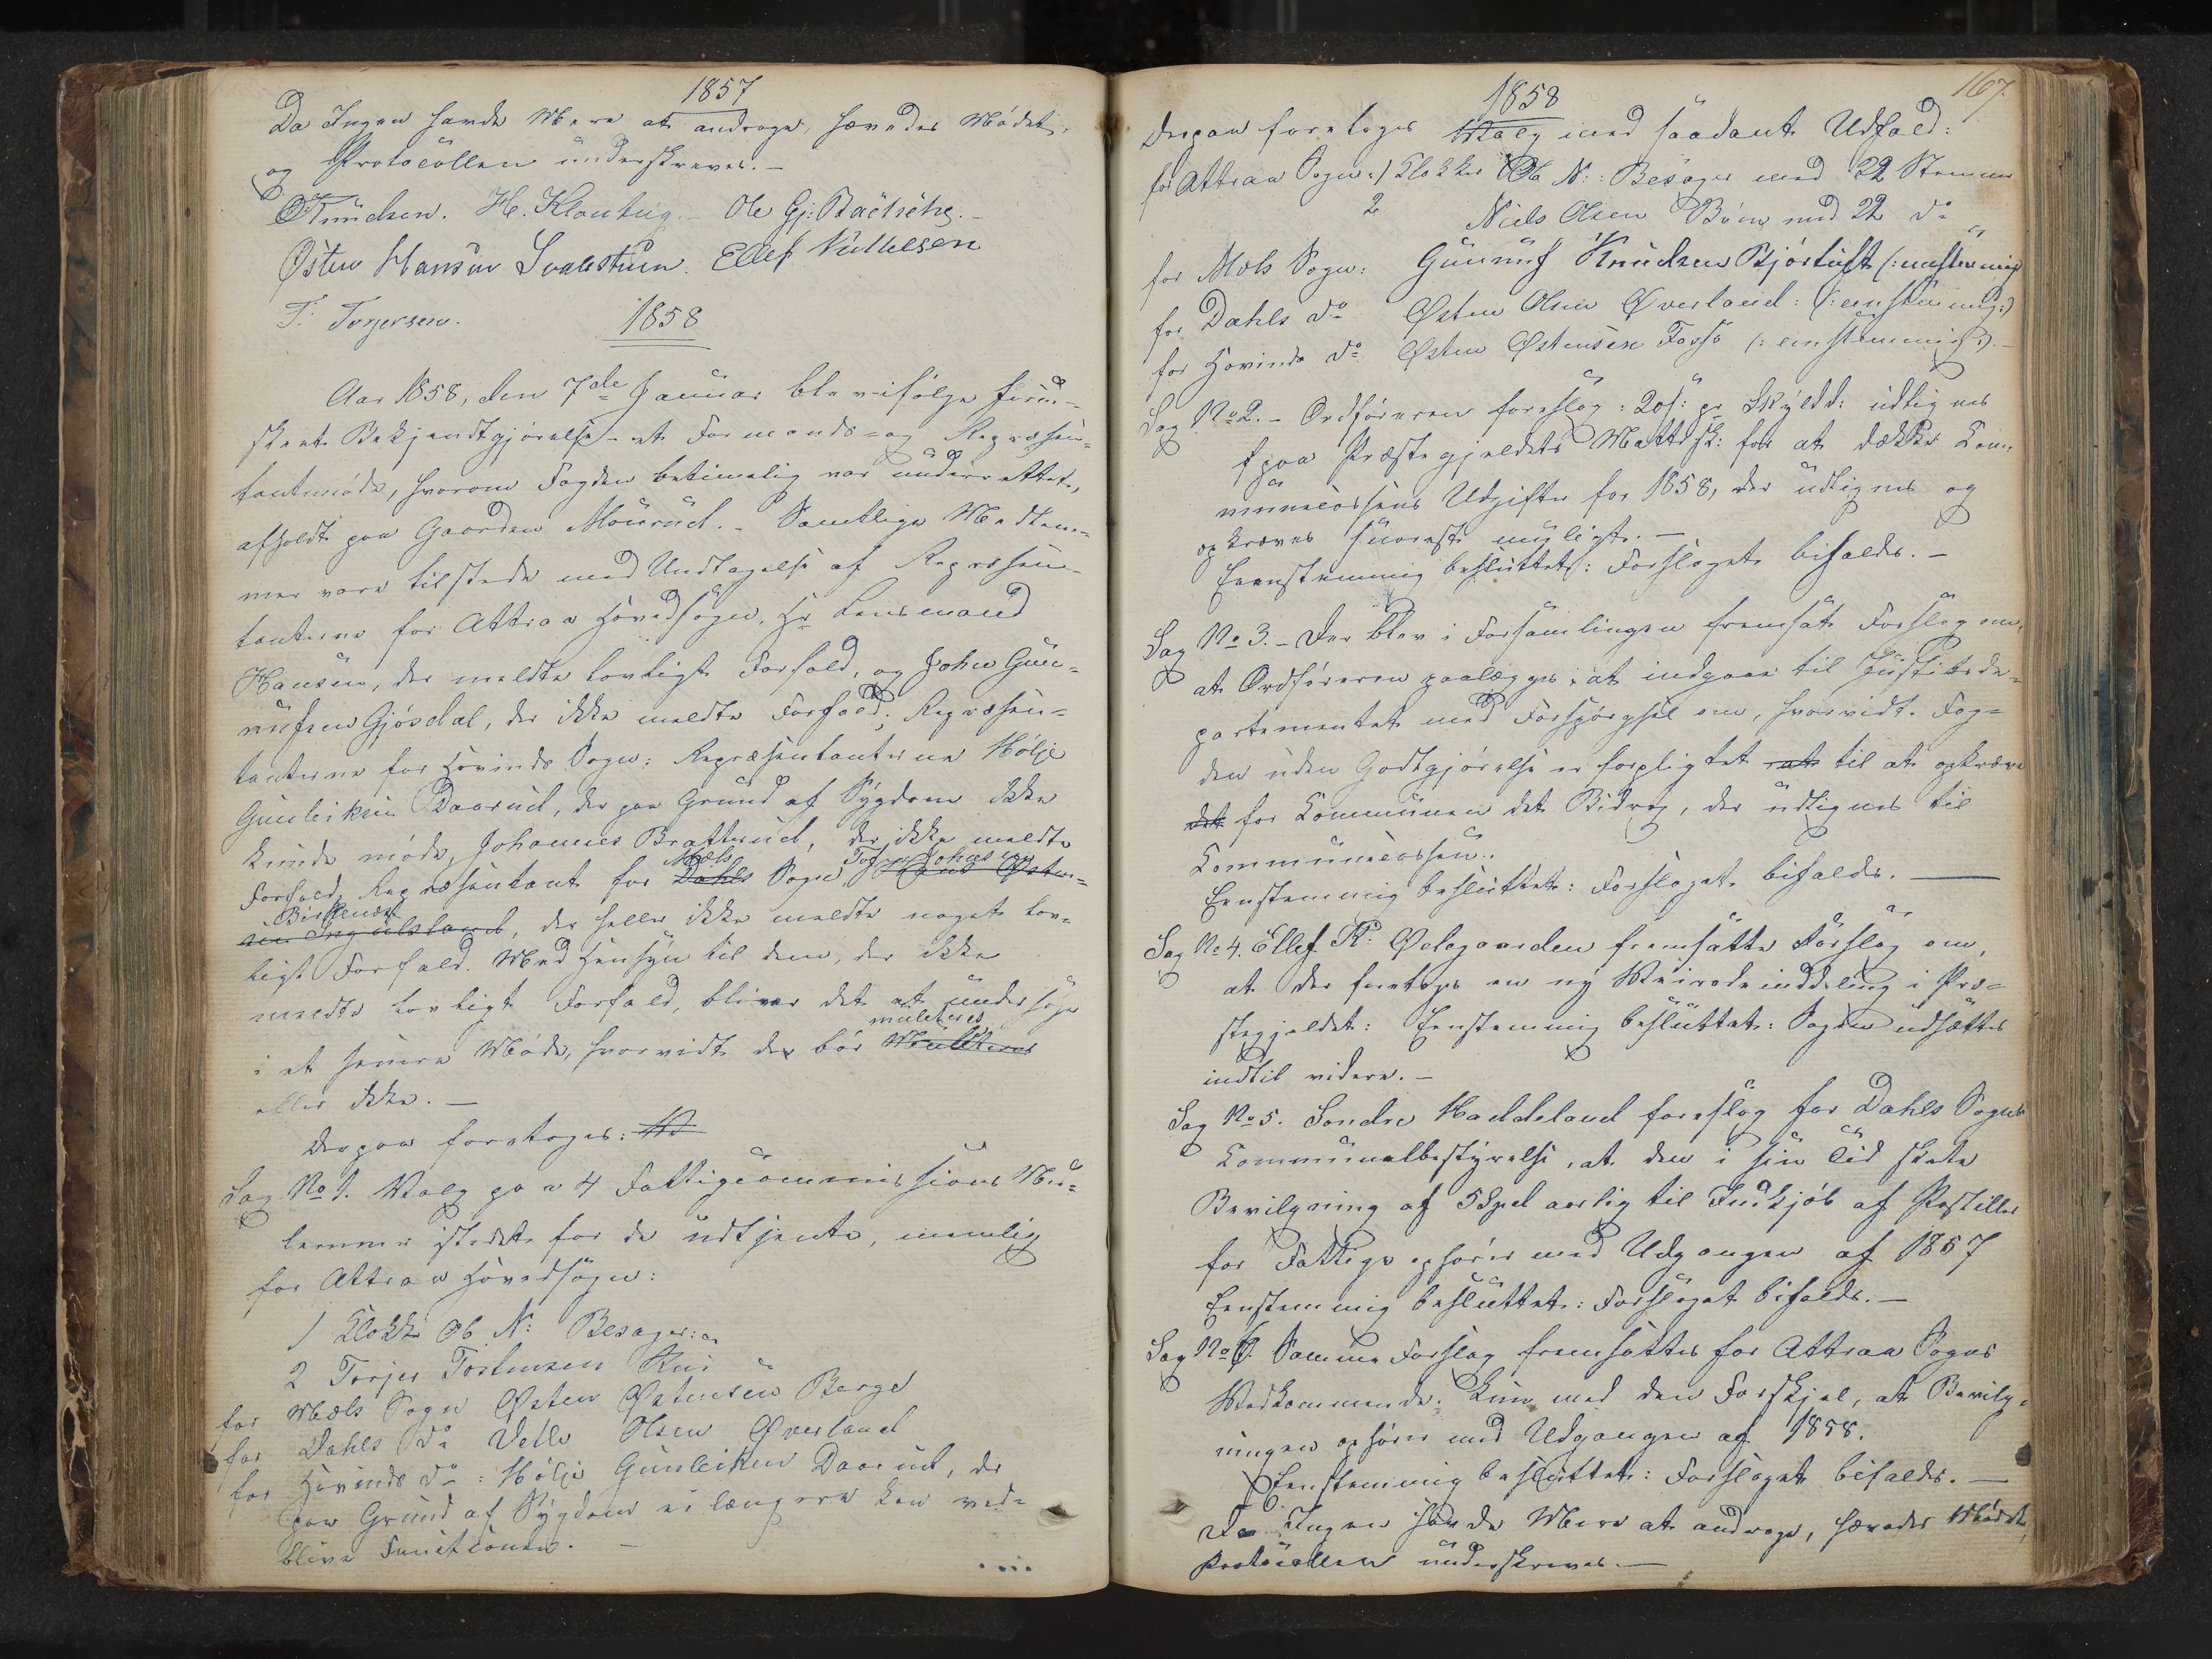 1857
Da Ingen havde Mere at andrage, hævedes Mødet,
og Protocollen underskreves.-
OKnudsen. H. Klontvig.- Ole Gj:
Østen Hansen Ellef
T. Torjersen.
1858
Aar 1858, den 7de Januar blev ifølge forud-
skeet Bekjendtgjørelse et Formands- og Repræsen-
tantmøde, hvorom Fogden betimelig var underrettet,
afholdt paa Gaarden Mourud.- Samtlige Medlem-
mer vare tilstede med Undtagelse af Repræsen-
tanterne for Attraa Hovedsogn, Hr Lensmand
Hansen, der meldte lovligt Forfald, og John Gun-
nufsen Gjøsdal, der ikke meldte Forfald; Repræsen-
tanterne for Hovinds Sogn: Repræsentanterne Hølje
Gunleiksen Daarud, der paa Grund af Sygdom ikke
kunde møde, Johannes Bratterud, der ikke meldte
Mæls Johnsen
Forfald, Repræsentant for Dahls Sogn Hans Østen-
Birkenæs
sen Ingulsland, der heller ikke meldte noget lov-
ligt Forfald. Med Hensyn til dem, der ikke
meldte lovligt Forfald, bliver det at undersøge
mulcteres
i et senere Møde, hvorvidt de bør Mulkteres
eller ikke.-
Derpaa foretoges:
Sag No 1. Valg paa 4 Fattigcommissions Med-
lemmer istedet for de udtjente, nemlig
for Attraa Hovedsogn:
1 Klokker Ob N: Besager:
2 Torjer Tostensen
for Mæls Sogn Østen Østensen Berge
for Dahls do Vetle Olsen Øverland
for Hovinds do: Hølje Gunleiksen Daarud, der
paa Grund af Sygdom ei længere kan ved-
blive Functionen.-
167.
1858
Derpaa foretoges Valg med saadant Udfald:
for Attraa Sogn: 1 Klokker Ob N: Besager med 22 Stemmer
2 Niels Olsen Bøen med 22 do
for Mæls Sogn: Gunnuf Knudsen Bjørtuft (: enstemmig
for Dahls do Østen Olsen Øverland: (: enstemmig:)
for Hovinds do Østen Østensen Fosso (: enstemmig:).-
Sag No 2.- Ordføreren foreslog: 20 s: pr Skyldd: udlignes
paa Præstegjeldets Matr.sk: for at dække Com-
munecassens Udgifter for 1858, der udlignes og
opkræves snarest muligt.-
Eenstemmig besluttet: Forslaget bifaldes.-
Sag No 3.- Der blev i Forsamlingen fremsat Forslag om,
at Ordføreren paalægges: at indgaae til Justitsde-
partementet med Forspørgsel om, hvorvidt Fog-
den uden Godtgjørelse er forpligtet at til at opkræve
det for Communen det Bidrag, der udlignes til
Communecassen.
Eenstemmig besluttet: Forslaget bifaldes.-
Sag No 4. Ellef K: Ødegaarden fremsatte Forslag om,
at der foretages en ny Veirodeinddeling i Præ-
stegjeldet: Eenstemmig besluttet: Sagen udsættes
indtil videre.-
Sag No 5. Sondre Haddeland foreslog for Dahls Sogns
Communalbestyrelse, at den i sin Tid skete
Bevilgning af 5 Spd aarlig til Indkjøb af Postiller
for Fattige ophører med Udgangen af 1857
Eenstemmig besluttet: Forslaget bifaldes.-
Sag No 6. Samme Forslag fremsattes for Attraa Sogns
Vedkommende: kun med den Forskjel, at Bevilg-
ningen ophører med Udgangen af 1858.
Eenstemmig besluttet: Forslaget bifaldes.-
Da Ingen havde Mere at andrage, hævedes Mødet,
Protocollen underskreves.-